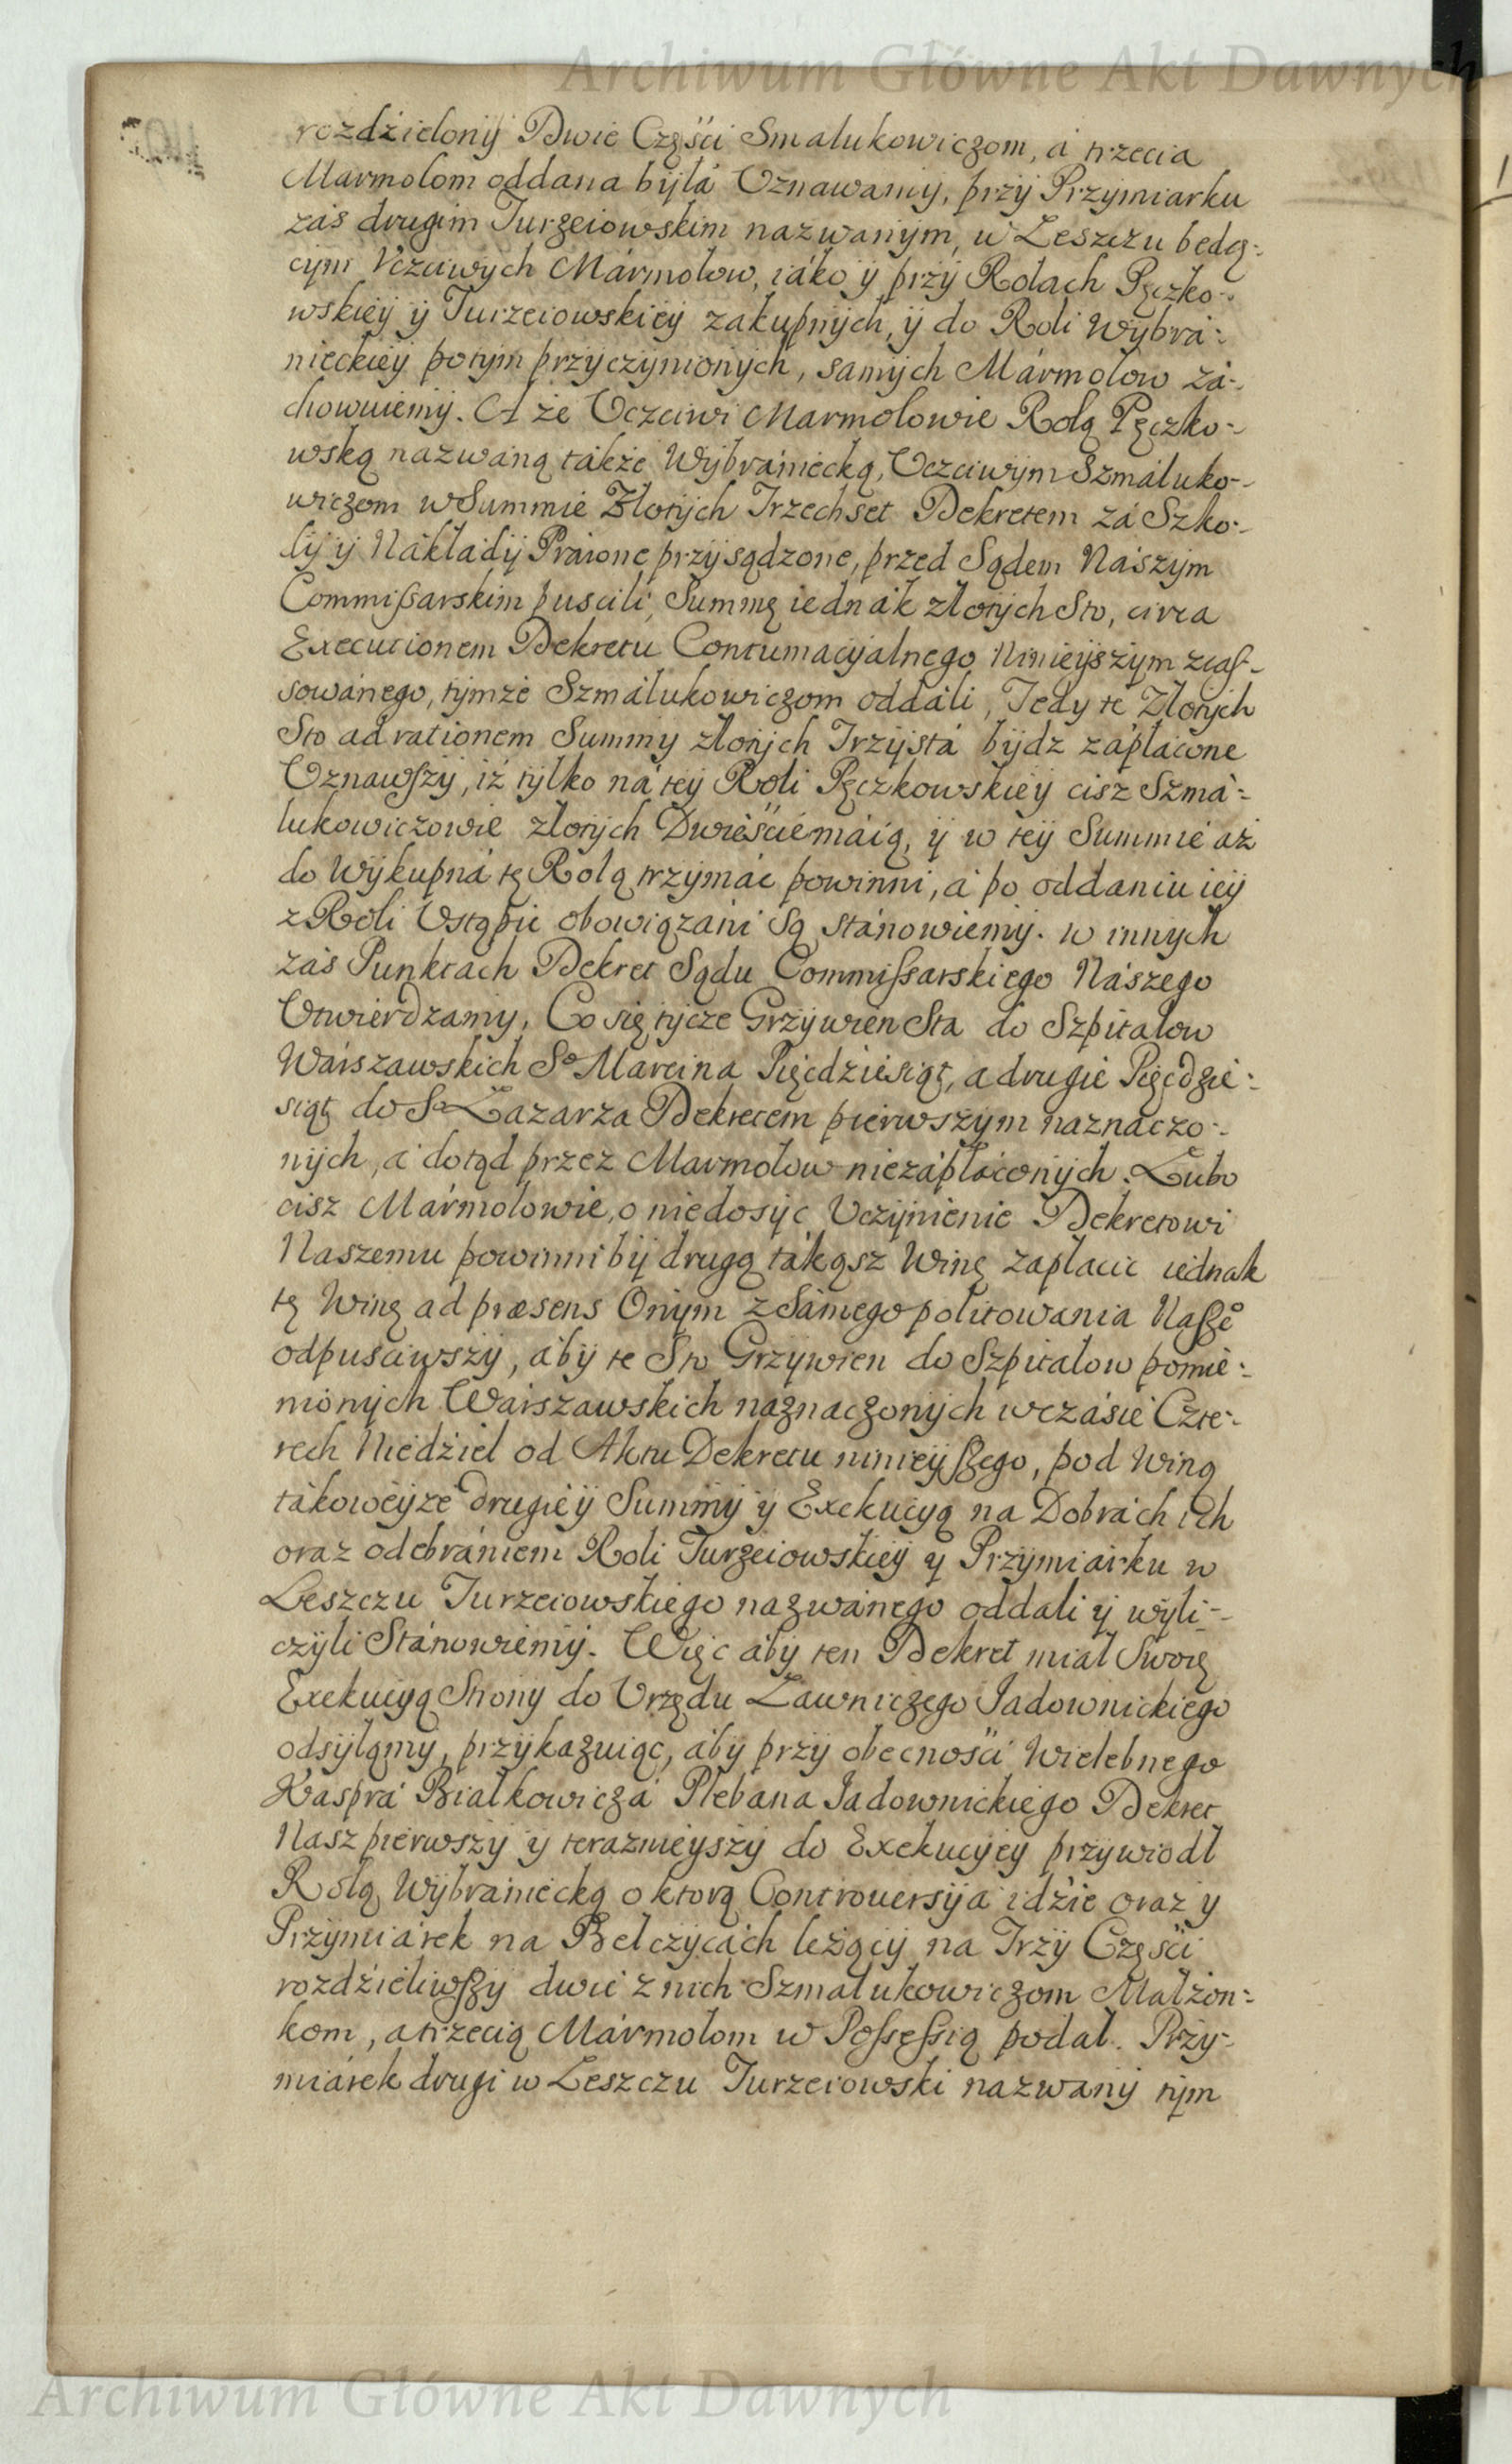 Archiwum Główne Akt Dawnych
rozdźielony Dwie Częśći Smalukowiczom, á trzecia
Marmolom oddana była Uznawamy, przy Przymiarku
zas drugim Turzeiowskim nazwanym, w Leszczu będą-
cym Uczciwych Mármolow, iáko y przy Rolach Pęczko-
wskiey y Turzeiowskiey zakupnych, y do Roli Wybrá-
nieckiey potym przyczynionych, samych Mármolow zá-
chowuiemy. A że Uczciwi Marmolowie Rolą Pęczko-
wską nazwáną tákże Wybrániecką, Uczciwym Szmáluko-
wiczom w Summie Złotych Trzechset Dekretem zá Szko-
dy y Nákłády Práwne przysądzone, przed Sądem Nászym
Commißarskim puscili, Summę iednák złotych Sto, circa
Executionem Dekretu Contumacyalnego Ninieyszym zcas-
sowánego, tymże Szmálukowiczom oddáli, Tedy te Złotych
Sto ad rationem Summy złotych Trzystá bydź zápłácone
Uznawszy, iż tylko ná tey Roli Pęczkowskiey cisz Szmá-
lukowiczowie złotych Dwieśćie máią, y w tey Summie aż
do Wykupná tę Rolą trzymáć powinni, á po oddaniu iey
z Roli Ustąpić obowiązáni są stánowiemy. w innych
zás Punktach Dekret Sądu Commißarskiego Nászego
Utwierdzamy, Co się tycze Grzywien Sta do Szpitalow
Wárszawskich So Marcina Pięćdźieśiąt, a drugie Pięćdźie-
siąt do So Lazarza Dekretem pierwszym naznaczo-
nych, á dotąd przez Marmolow niezápłáconych. Lubo
cisz Mármolowie, o niedosyć Uczynienie Dekretowi
Naszemu powinniby drugą tákąsz Winę zapłacić iednak
tę Winę ad præsens Onym z Sámego politowania Naszeo
odpuściwszy, áby te Sto Grzywien do Szpitalow pomie-
nionych Wárszawskich náznaczonych w czásie Czte-
rech Niedźiel od Aktu Dekretu ninieyszego, pod Winą
tákoweyże drugiey Summy y Exekucyą na Dobrách ich
oraz odebrániem Roli Turzeiowskiey y Przymiárku w
Leszczu Turzeiowskiego nazwánego oddali y wyli-
czyli Stánowiemy. Więc áby ten Dekret miał Swoię
Exekucyą Strony do Urzędu Ławniczego Jadownickiego
odsyłamy, przykazuiąc, áby przy obecnośći Wielebnego
Kasprá Białkowiczá Plebana Jadownickiego Dekret
Nasz pierwszy y teraznieyszy do Exekucyey przywiodł
Rolą Wybraniecką o ktorą Controuersya idźie oraz y
Przymiárek na Bełczycách leżący na Trzy Częśći
rozdźieliwszy dwie z nich Szmalukowiczom Małżon-
kom, a trzecią Mármolom w Possessią podał. Przy-
miárek drugi w Leszczu Turzeiowski nazwany tym
Archiwum Główne Akt Dawnych